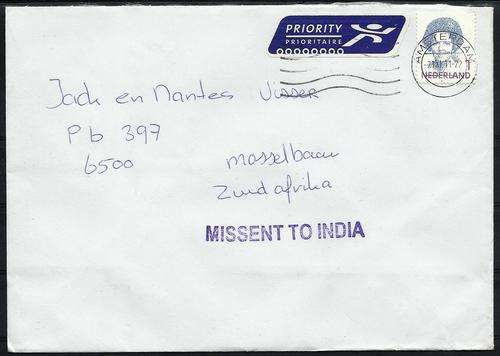 PRIORITY
PRIORITAIRE
AMSTERDAM
NEDERLAND
Jack en Mantes Visser
Pb 397
6500
Mosselbaai
Zuid afrika
MISSENT TO INDIA